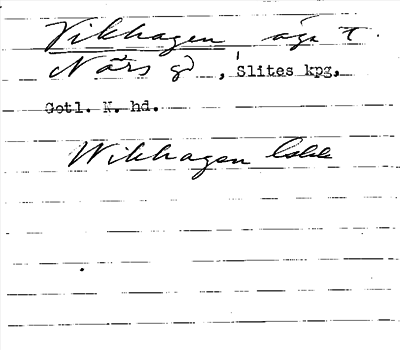 Vikhagen äga t.
Närs gd, Slites kpg,
Gotl. N. hd.
Wikhagen